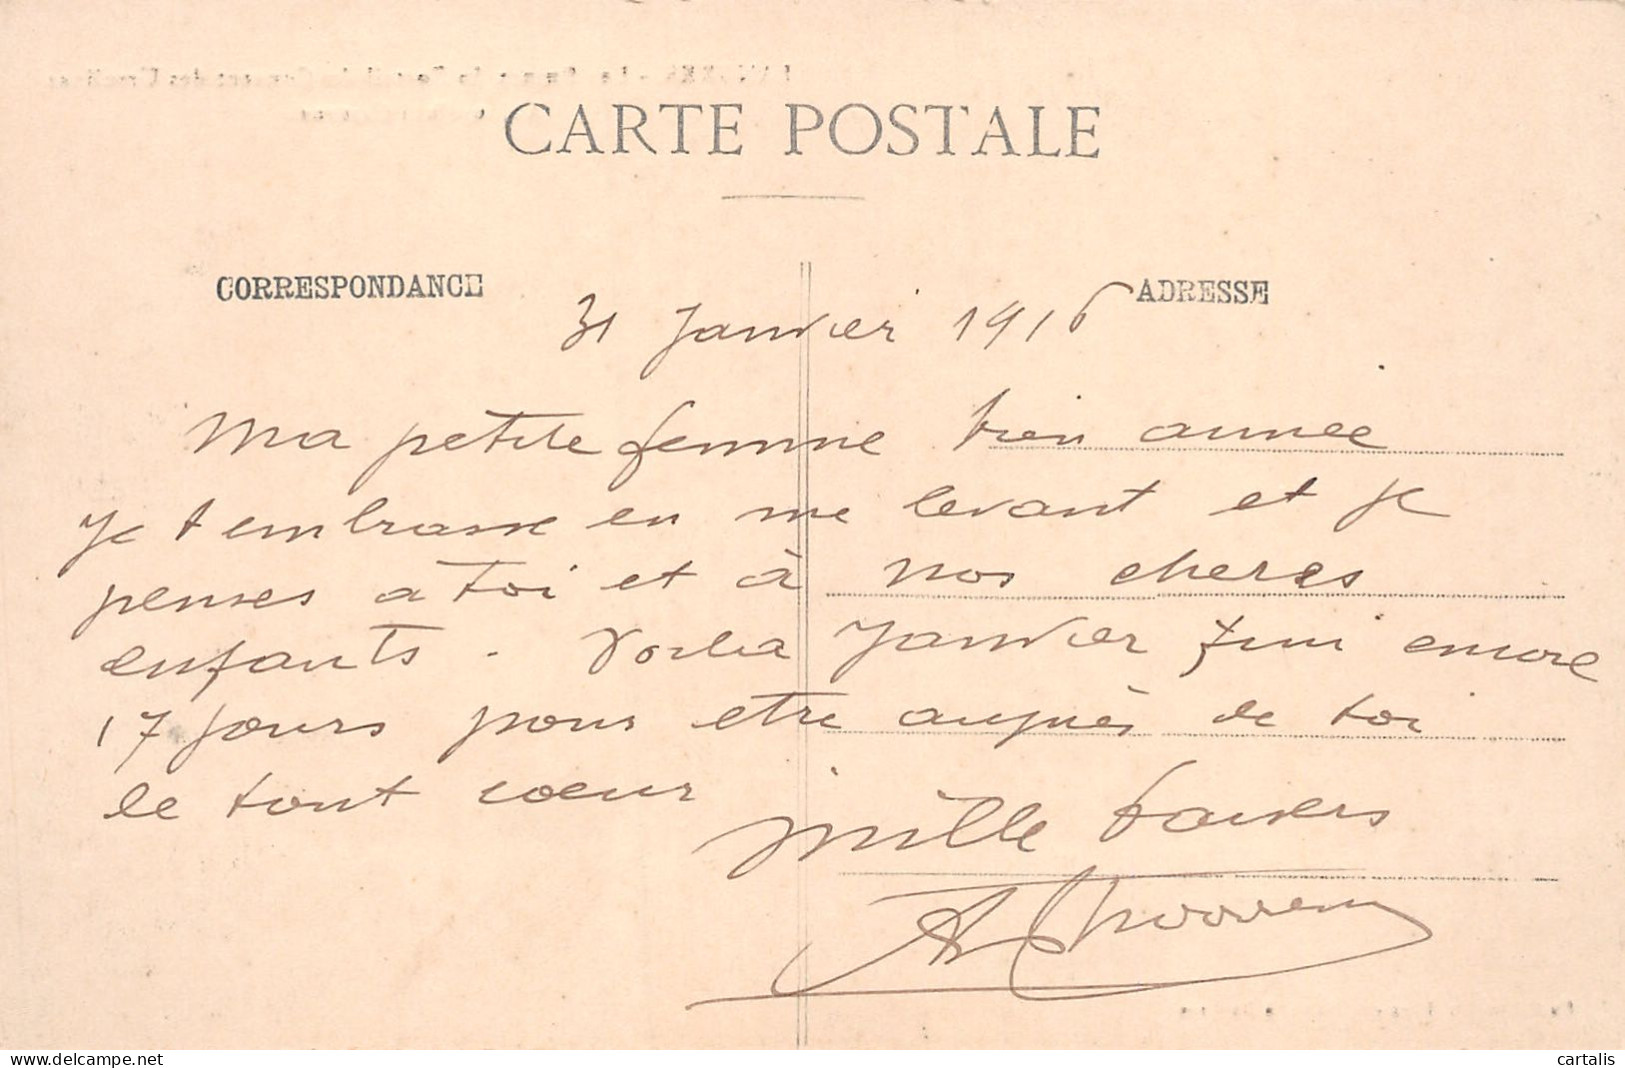 CARTE POSTALE
CORRESPONDANCE
ADRESSE
31 Janvier 1916
Ma petite femme bien aimée
Je t embrasse en me levant et je
penses a toi et à nos cheres
enfants. Voila Janvier fini encore
17 jours pour etre auprès de toi
de tout cœur
mille baisers
cartalis
www.delcampe.net